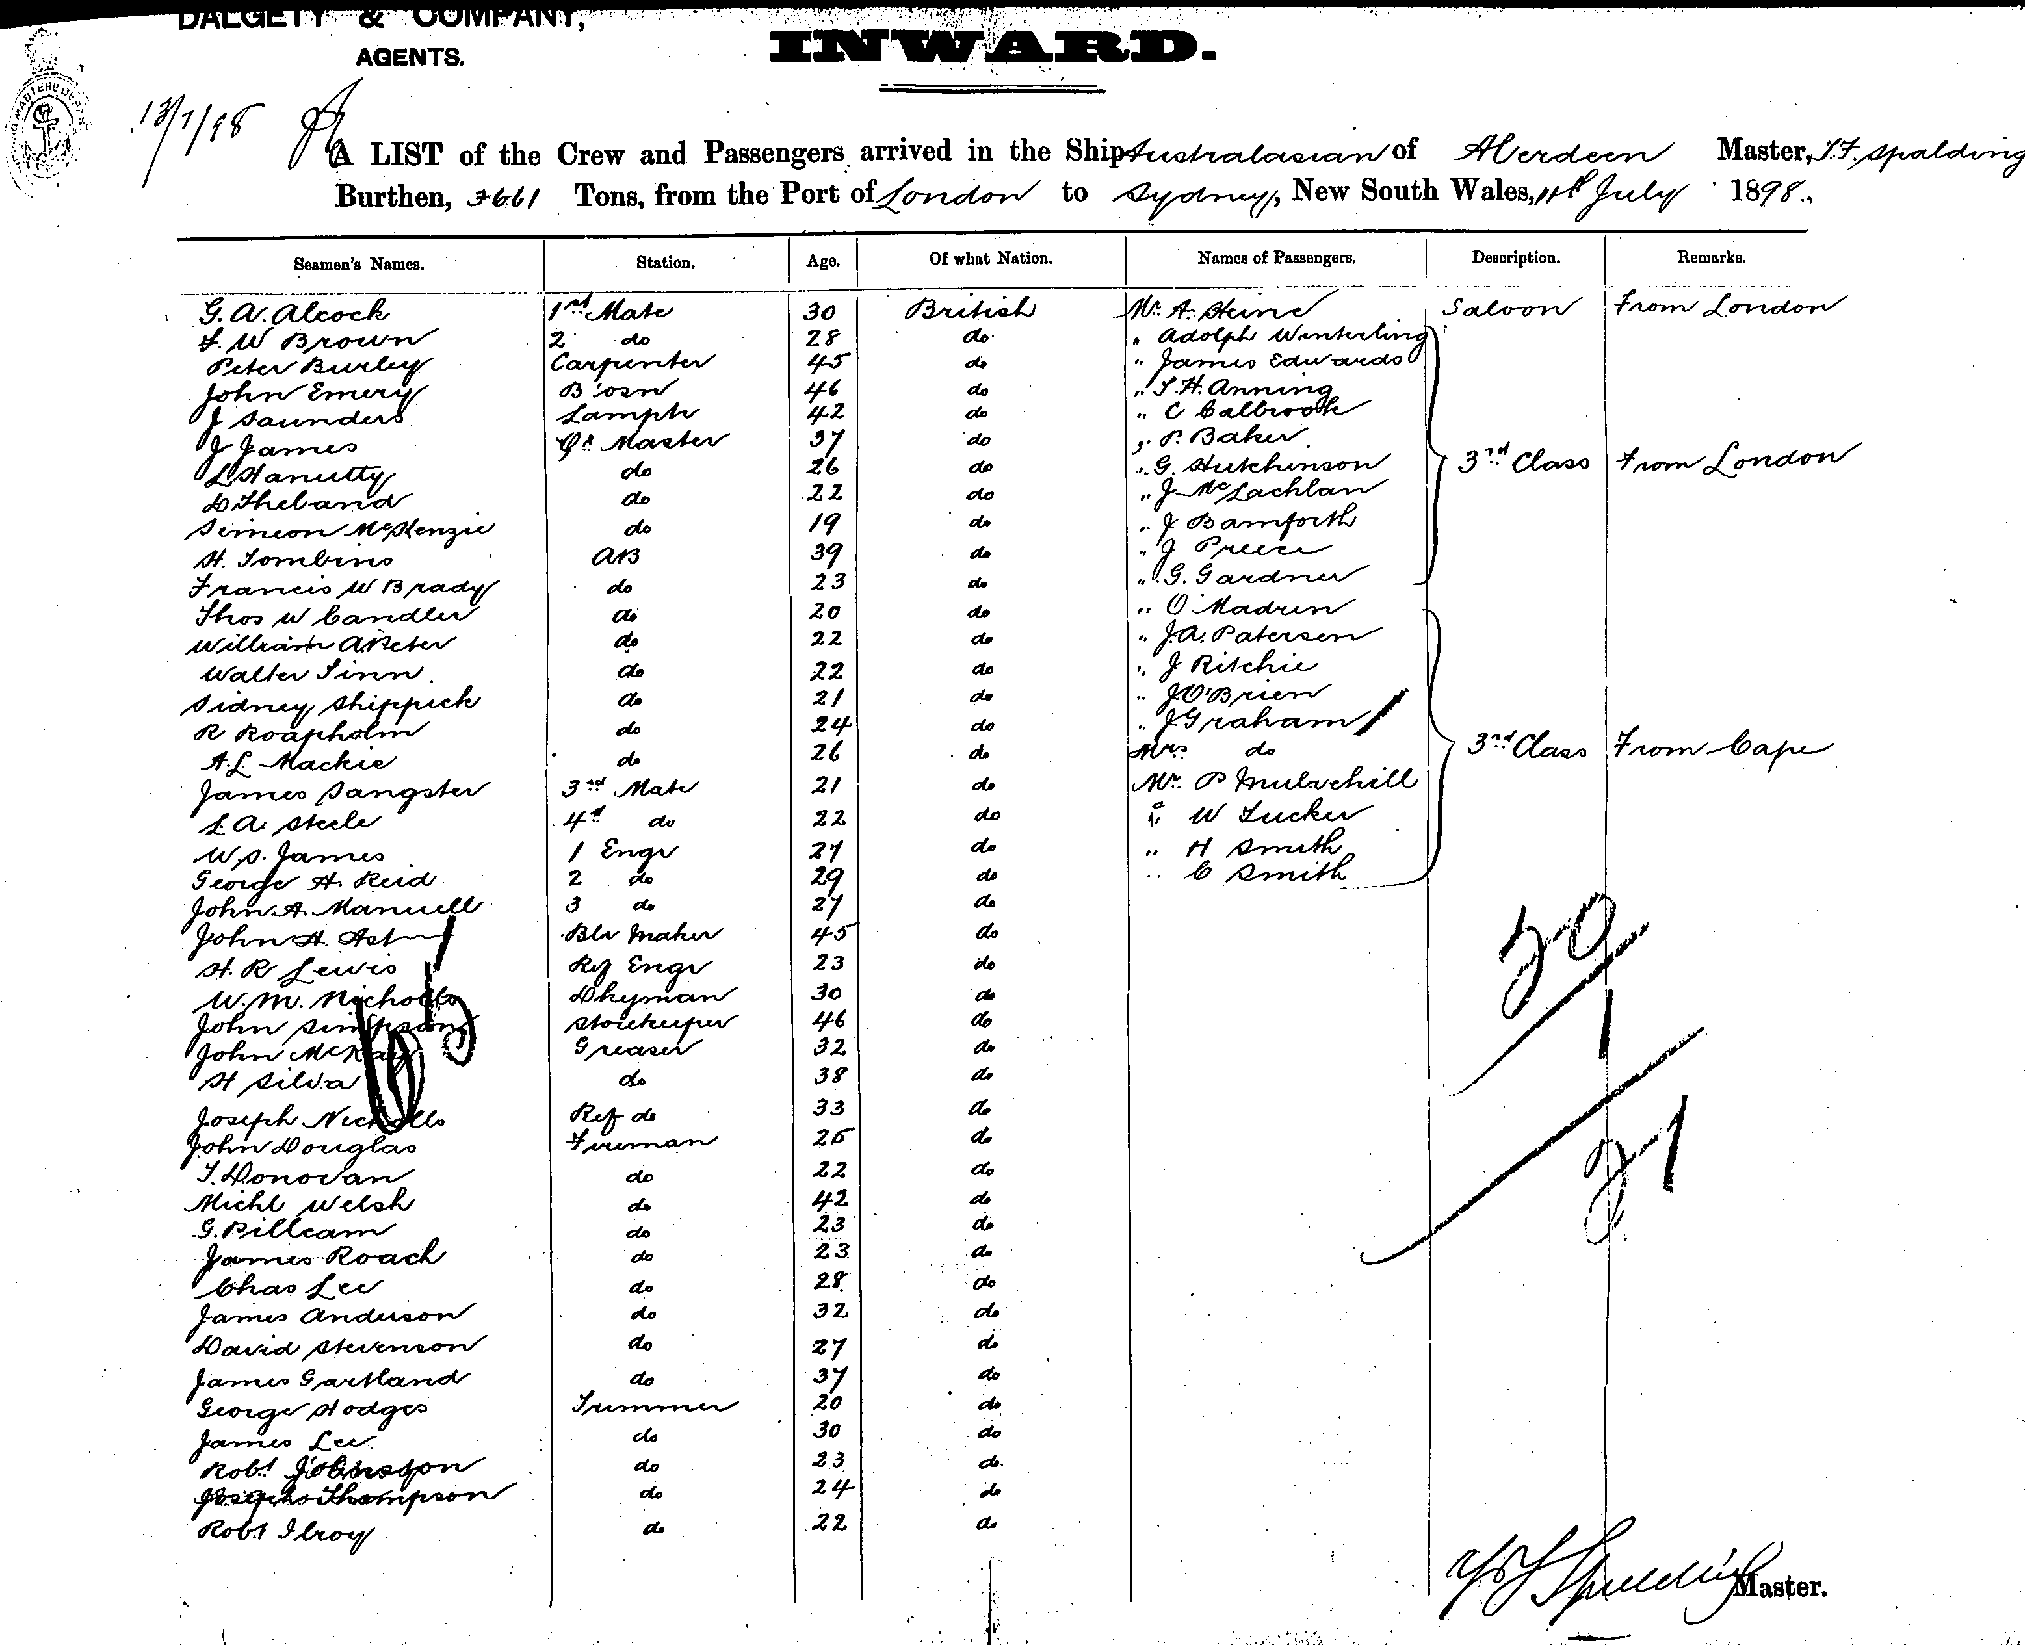 DALGETY & COMPANY,
AGENTS.
INWARD.
13/7/98
A LIST of the Crew and Passengers arrived in the Ship Australasian of Aberdeen Master, T.F. Spalding
Burthen, 3661 Tons, from the Port of London to Sydney, New South Wales, 11th July 1898.
Seamen's Names. Station. Age. Of what Nation. Names of Passengers. Description. Remarks.
G. A. Alcock 1st Mate 30 British Mr A. Heine Saloon From London
F. W Brown 2 do 28 do " Adolph Winterling
Peter Burley Carpenter 45 do " James Edwards
John Emery B'osn 46 do " T. H. Anning
J Saunders Lamptr 42 do " C Calbrook
J James Qr Master 37 do " P. Baker
L Hanutty do 26 do " G. Hutchinson 3rd Class From London
D Theband do 22 do " J McLachlan
Simeon McKenzie do 19 do " J Bamforth
H. Tombins AB 39 do " J Preece
Francis W Brady do 23 do " G. Gardner
Thos W Candler do 20 do " O'Madren
William A Peter do 22 do " J. A. Paterson
Walter Finn do 22 do " J Ritchie
Sidney Shippick do 21 do " J O'Brien
R Roapholm do 24 do " J Graham
A. L. Mackie do 26 do Mrs do 3rd Class From Cape
James Sangster 3rd Mate 21 do Mr P Mulvehill
L. A. Steele 4th do 22 do " W Tucker
W. S. James 1 Engr 27 do " H Smith
George H. Reid 2 do 29 do " C Smith
John A. Manuell 3 do 27 do
John H. Ast Blr Maker 45 do
H. R Lewis Ref Engr 23 do 30
W. M. Nicholls Dkyman 30 do
John Simpson Storekeeper 46 do 1
John McKay Greaser 32 do
H Silva do 38 do
65
Joseph Nicholls Ref do 33 do
John Douglas Fireman 25 do 31
T. Donovan do 22 do
Michl Welsh do 42 do
G. Pilleam do 23 do
James Roach do 23 do
Chas Lee do 28 do
James Anderson do 32 do
David Stevenson do 27 do
James Gartland do 37 do
George Hodges Trimmer 20 do
James Lee do 30 do
Robt Johnston do 23 do
Joseph Thompson do 24 do
Robt Ilroy do 22 do
Spalding Master.